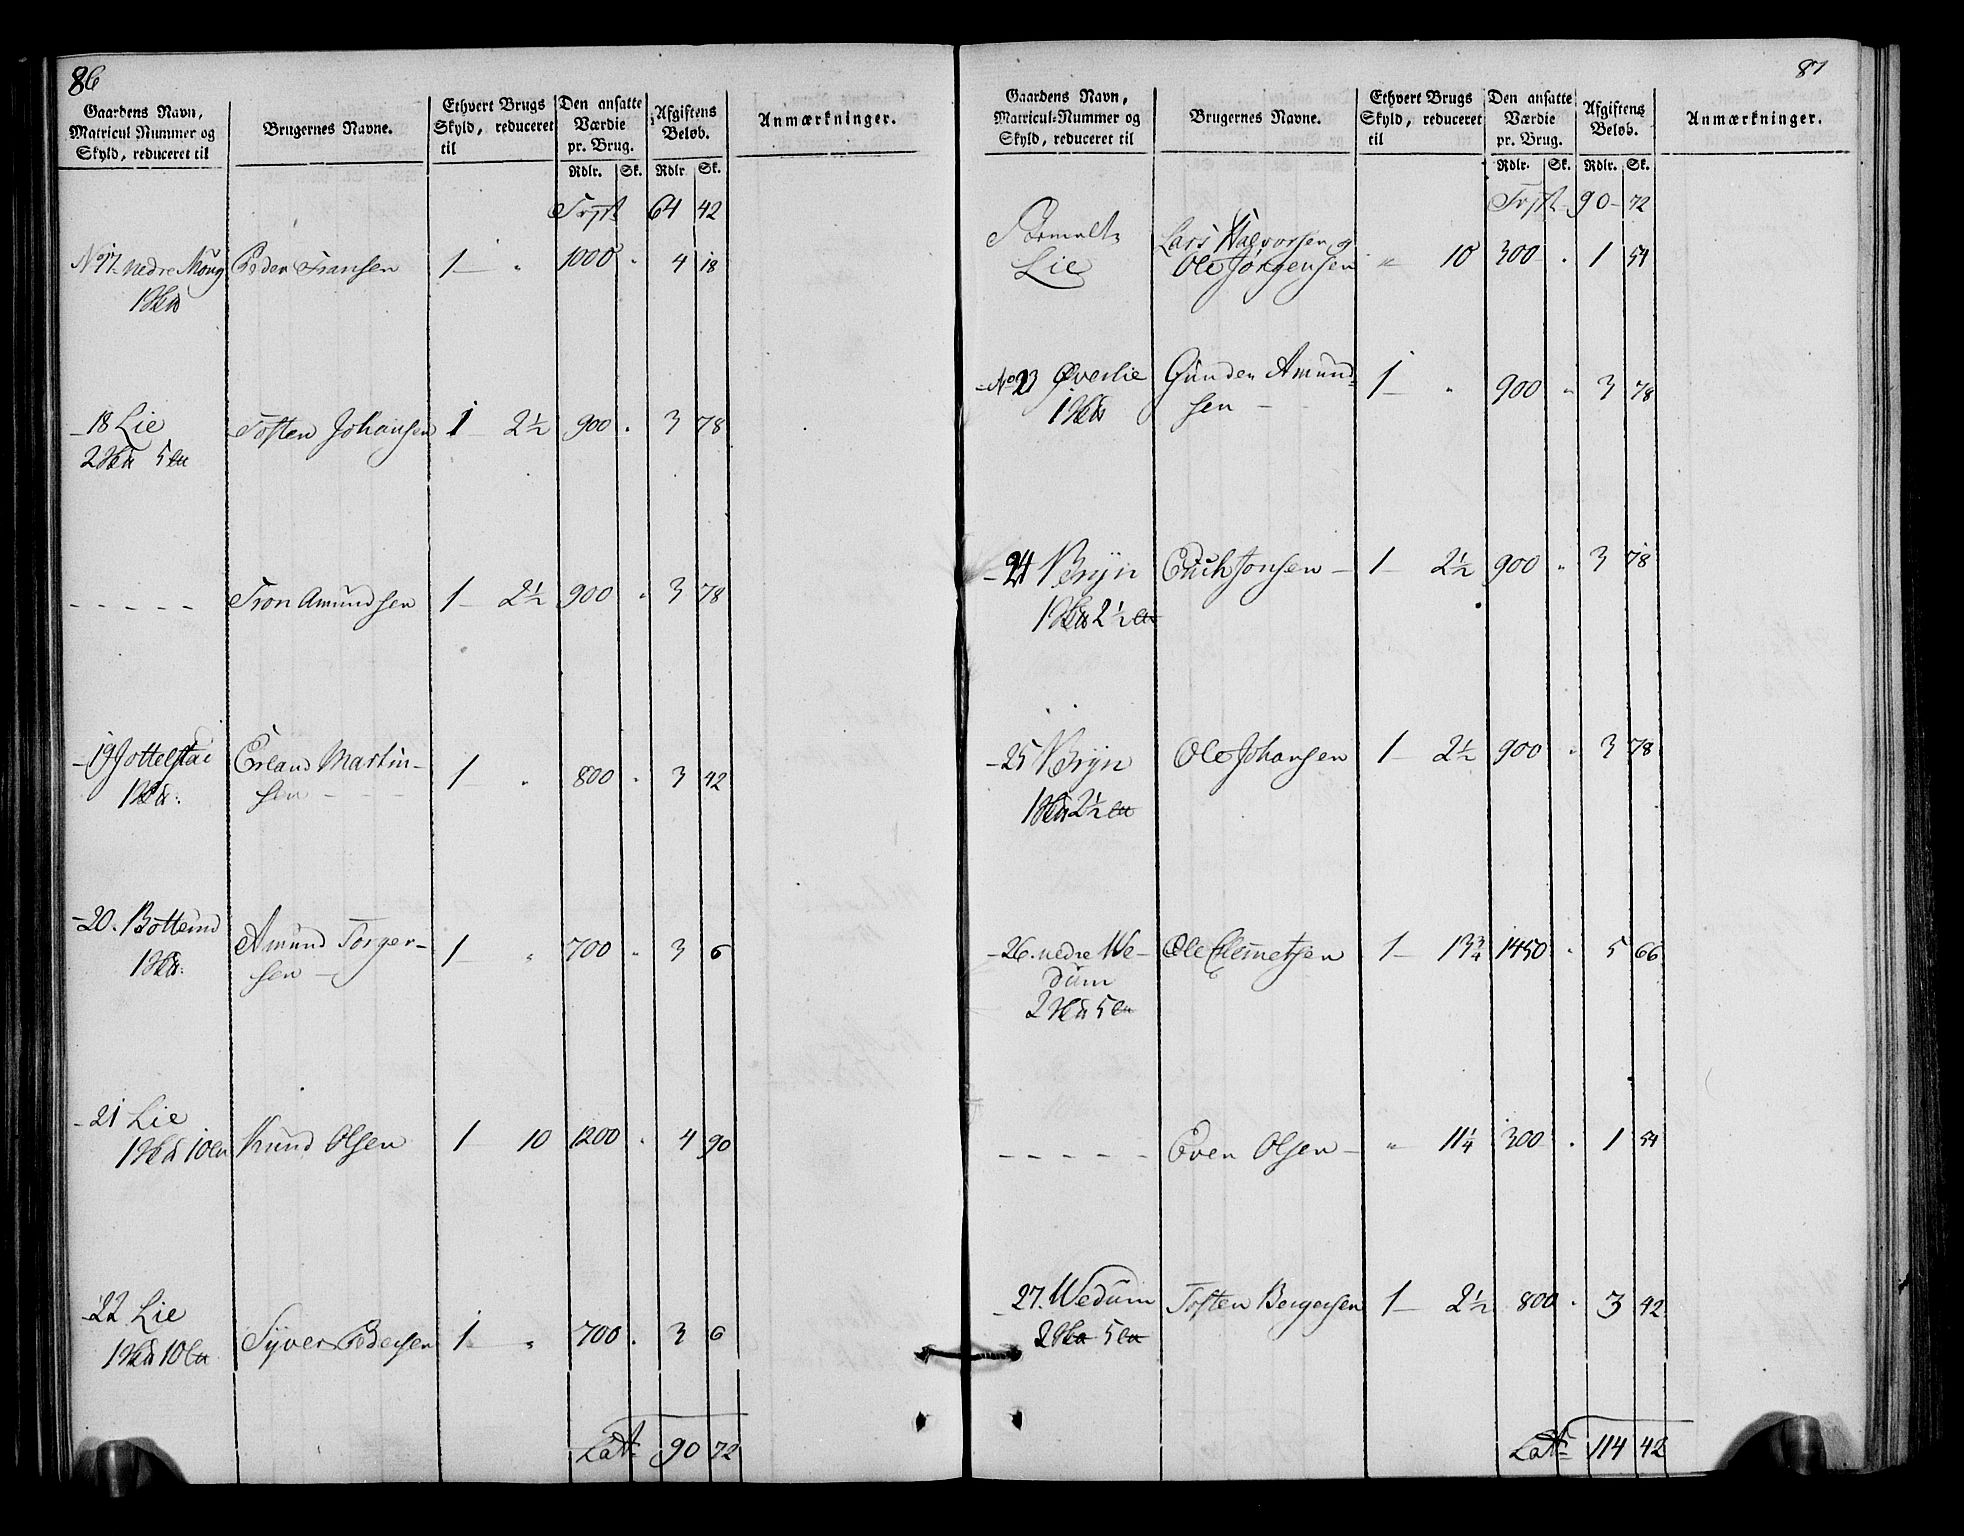 86
Gaardens Navn, Matricul Nummer og Skyld, reduceret til | Brugernes Navne. | Ethvert Brugs Skyld, reduceret til | Den ansatte Værdie pr. Brug. | Afgiftens Beløb. | Anmærkninger.
Rdlr. Sk. Rdlr. Sk.
64 42
No 17 nedre Moug Peder Fransen 1 " 1000 " 4 18
18 Lie Tosten Johansen 1 2½ 900 " 3 78
2 5
- - - - - Tron Amundsen 1 2½ 900 " 3 78
19 Jottelstad Erland Martin- 1 " 800 " 3 42
1 sen
20. Bottemd Amund Torger- 1 " 700 " 3 6
1 sen
21 Lie Knud Olsen 1 10 1200 " 4 90
1 10
22 Lie Syver Pedersen 1 " 700 " 3 6
1 10
Lat: 90 72
87
Gaardens Navn, Matricul-Nummer og Skyld, reduceret til | Brugernes Navne. | Ethvert Brugs Skyld, reduceret til | Den ansatte Værdie pr. Brug. | Afgiftens Beløb. | Anmærkninger.
Rdlr. Sk. Rdlr. Sk.
90 72
Lars Halvorsen og
Lie Ole Jørgensen " 10 300 " 1 54
No 23 Øverlie Gunder Amund- 1 " 900 " 3 78
1 sen
24 Bryn Erich Jonsen 1 2½ 900 " 3 78
1 2½
25 Bryn Ole Johansen 1 2½ 900 " 3 78
1 2½
26. nedre We- Ole Clemetsen 1 13¾ 1450 " 5 66
dum
2 5
- - - - - Even Olsen " 11¼ 300 " 1 54
27. Wedum Tosten Bergersen 1 2½ 800 " 3 42
2 5
Lat: 114 42